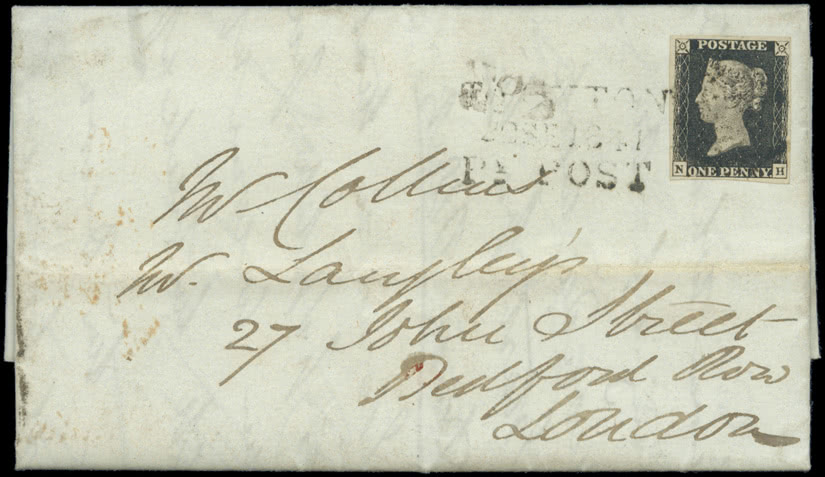 POSTAGE
N ONE PENNY H
SE 1841
PY POST
Mr Collins
Mr. Langley's
27 John Street
Bedford Row
London